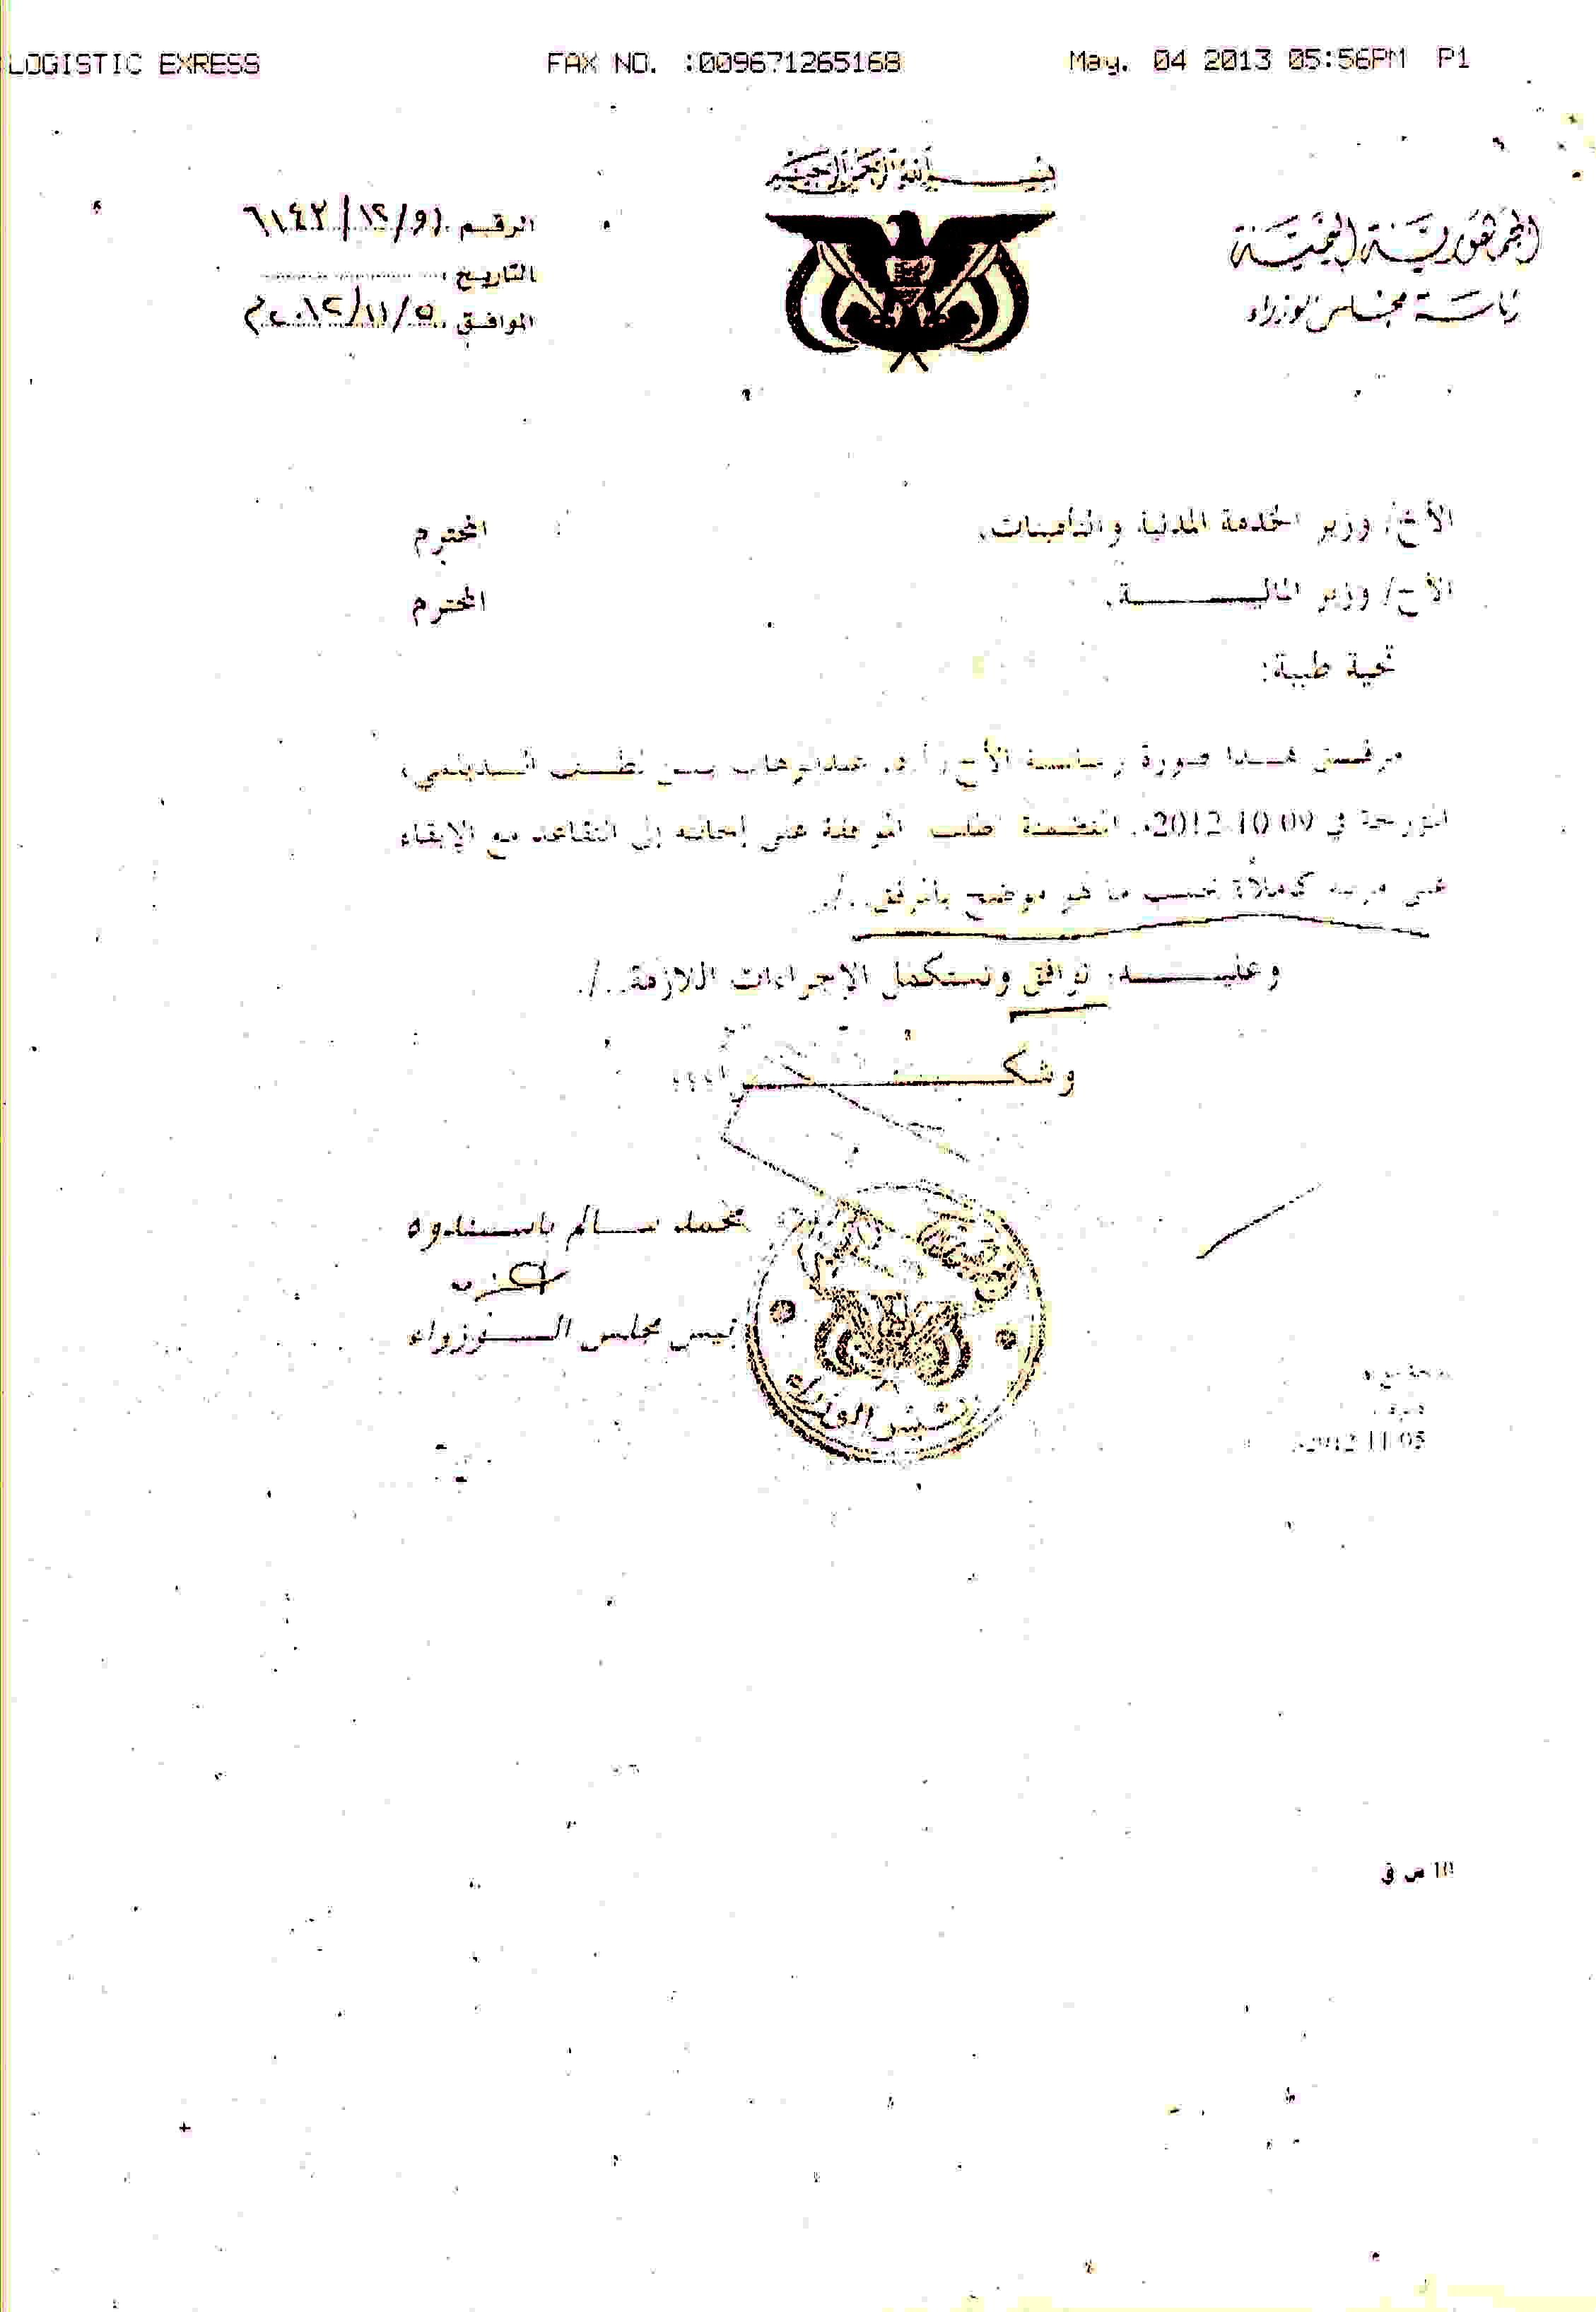 LOGISTIC EXRESS FAX NO. :009671265168 May. 04 2013 05:56PM P1
بسم الله الرحمن الرحيم
الجمهورية اليمنية
رئاسة مجلس الوزراء
الرقم
التاريخ
الموافق ٢٠١٢/١١/٥م
الأخ/ وزير الخدمة المدنية والتأمينات. المحترم
الأخ/ وزير الماليـــــــة. المحترم
تحية طيبة:
مرفق هذا صورة رسالة الأخ/ أ.د. عبدالوهاب بن لطف الديلمي،
المؤرخة في 2012.10.09م. المتضمنة طلب الموافقة على إحالته إلى التقاعد مع الإبقاء
على مرتبه كاملاً، بحسب ما هو موضح بالمرفق../.
وعليـــــه: نوافق وتستكمل الإجراءات اللازمة../.
وشكـــــــــراً،،،
محمد سالم باسندوه
رئيس مجلس الوزراء
رئيس الوزراء
2012.11.05
10 س ق